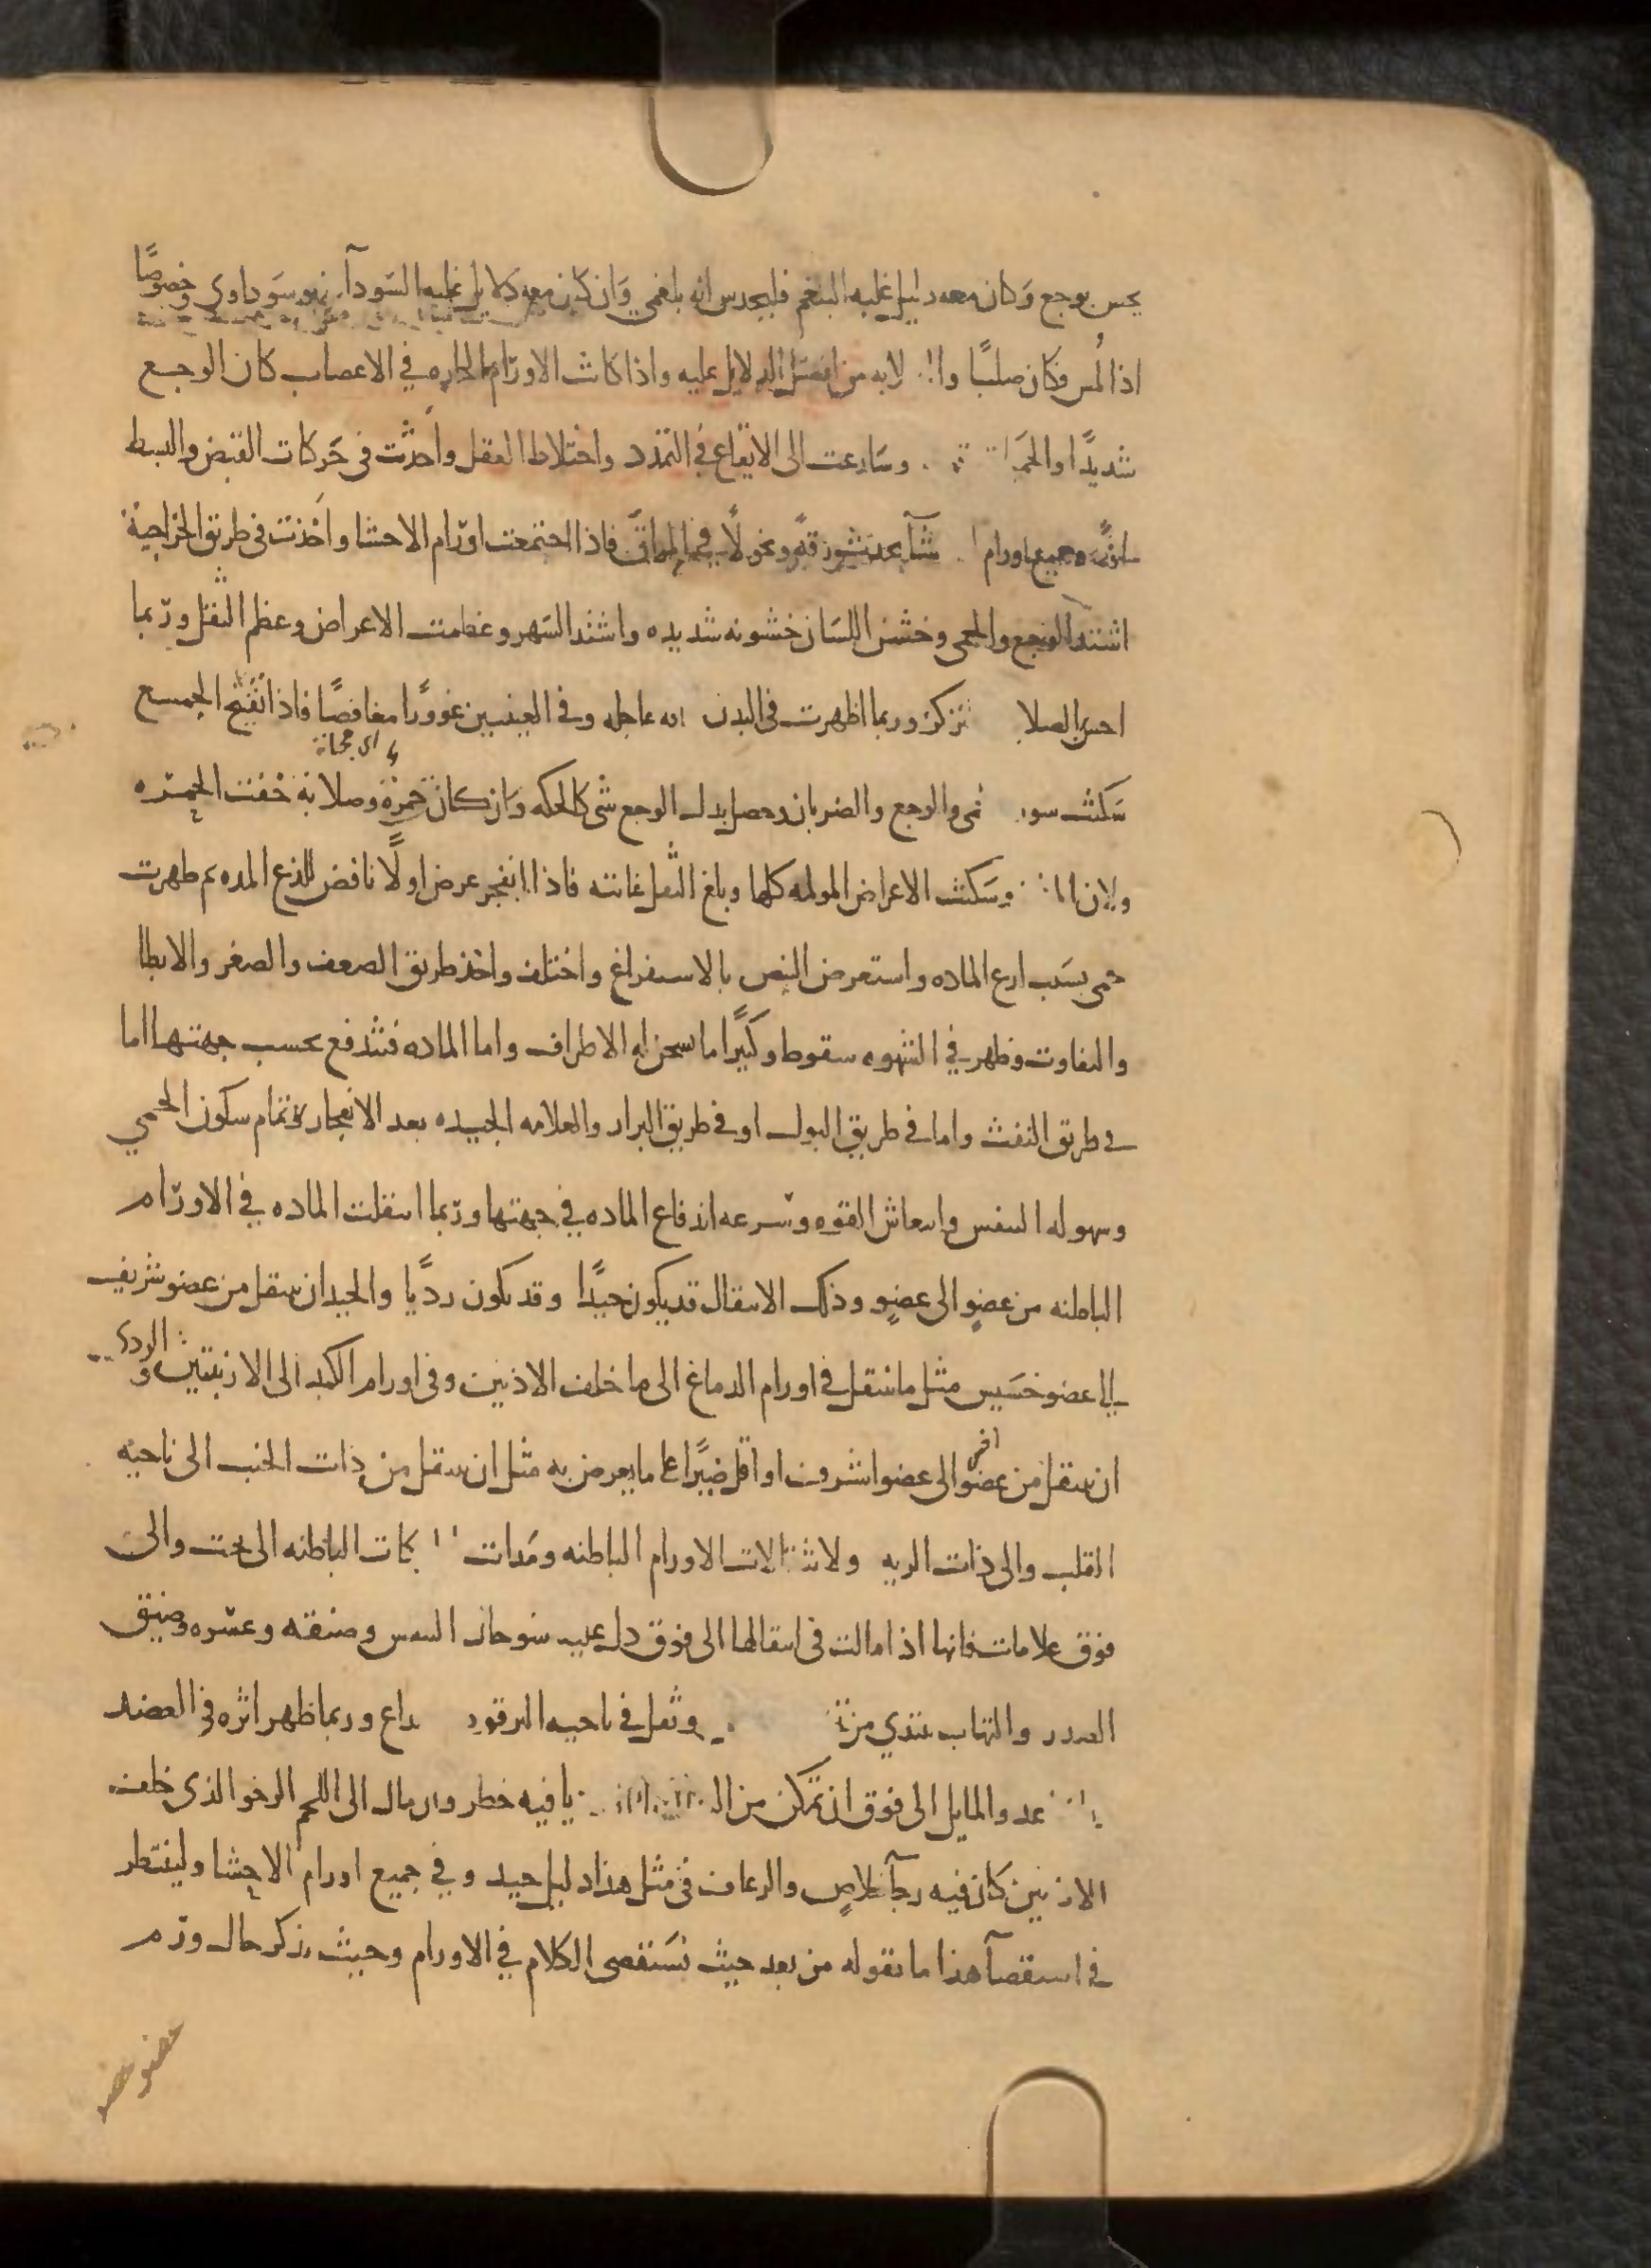 يحس بوجع وكان معه دليل غلبه البلغم فليحدس انه بلغمي وان كان معه دلايل غلبه السودآ فهو سوداوى وخصوصًا
اذا لمس وكان صلبًا لابه من افضل الدلايل عليه واذا كانت الاورام الحاره في الاعصاب كان الوجع
شديدًا والحمـ وسارعت الى الايقاع في التمدد واختلاط العقل واحدثت فى حركات القبض والبسط
وجميع اورام يحدث رقهً ونحولًا في المراق فاذا اجتمعت اورام الاحشا واخذت فى طريق الخراجية
اشتد الوجع والحمى وخشن اللسان خشونه شديده واشتد السهر وعظمت الاعراض وعظم الثقل وربما
احس الصلا تركز وربما اظهرت فى البدن عاجله وفى العينين غوورًا مغافصًا فاذا تقيح الجمع
اى مجاة
سكنت سور مى والوجع والضربان وحصل بدل الوجع شى كالحكه وان كان حمرة وصلابة خفت الحمره
ولان وسكنت الاعراض المولمه كلها وبلغ الثقل غايته فاذا انفجر عرض اولًا نافض للذع المده ثم ظهرت
حمى بسبب لذع الماده واستعرض النبض بالاستفراغ واختلف واخذ طريق الضعف والصغر والابطا
والتفاوت وظهر في الشهوه سقوط وكثيرًا ما تسخن له الاطراف واما الماده فتندفع بحسب جهتها اما
في طريق النفث واما في طريق البول او في طريق البراز والعلامه الجيده بعد الانفجار تمام سكون الحمي
وسهوله التنفس وانتعاش القوه وسرعه اندفاع الماده في جهتها وربما انتقلت الماده في الاورام
الباطنه من عضوٍ الى عضوٍ وذلك الانتقال قد يكون جيدًا وقد يكون رديًا والجيد ان ينتقل من عضو شريف
الى عضو خسيس مثل ما ينتقل في اورام الدماغ الى ما خلف الاذنين وفى اورام الكبد الى الاربيتين والردى
ان ينتقل من عضو اخر الى عضو اشرف او اقل صبرًا على ما يعرض به مثل ان ينتقل من ذات الجنب الى ناحيه
القلب والى ذات الريه ولانتقالات الاورام الباطنه ومدات الباطنه الى تحت والى
فوق علامات فانها اذا مالت فى انتقالها الى فوق دل عليه سو حال التنفس وضيقه وعسره وضيق
الصدر والتهاب يبتدي من وثقل في ناحيه الترقوه داع وربما ظهر اثره في العضد
عد والمايل الى فوق ان تمكن من الـ يا فيه خطر وان مال الى اللحم الرخو الذى خلف
الاذنين كان فيه رجآ خلاصٍ والرعاف في مثل هذا دليل جيد وفي جميع اورام الاحشا ولينتظر
في استقصآ هذا ما نقوله من بعد حيث نستقصى الكلام في الاورام وحيث نذكر حال ورم
عضو عضو